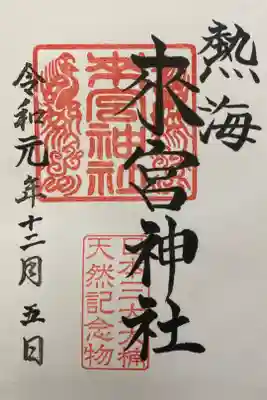 熱海
來宮神社
令和元年十二月五日
來宮神社
日本三大大楠
天然記念物